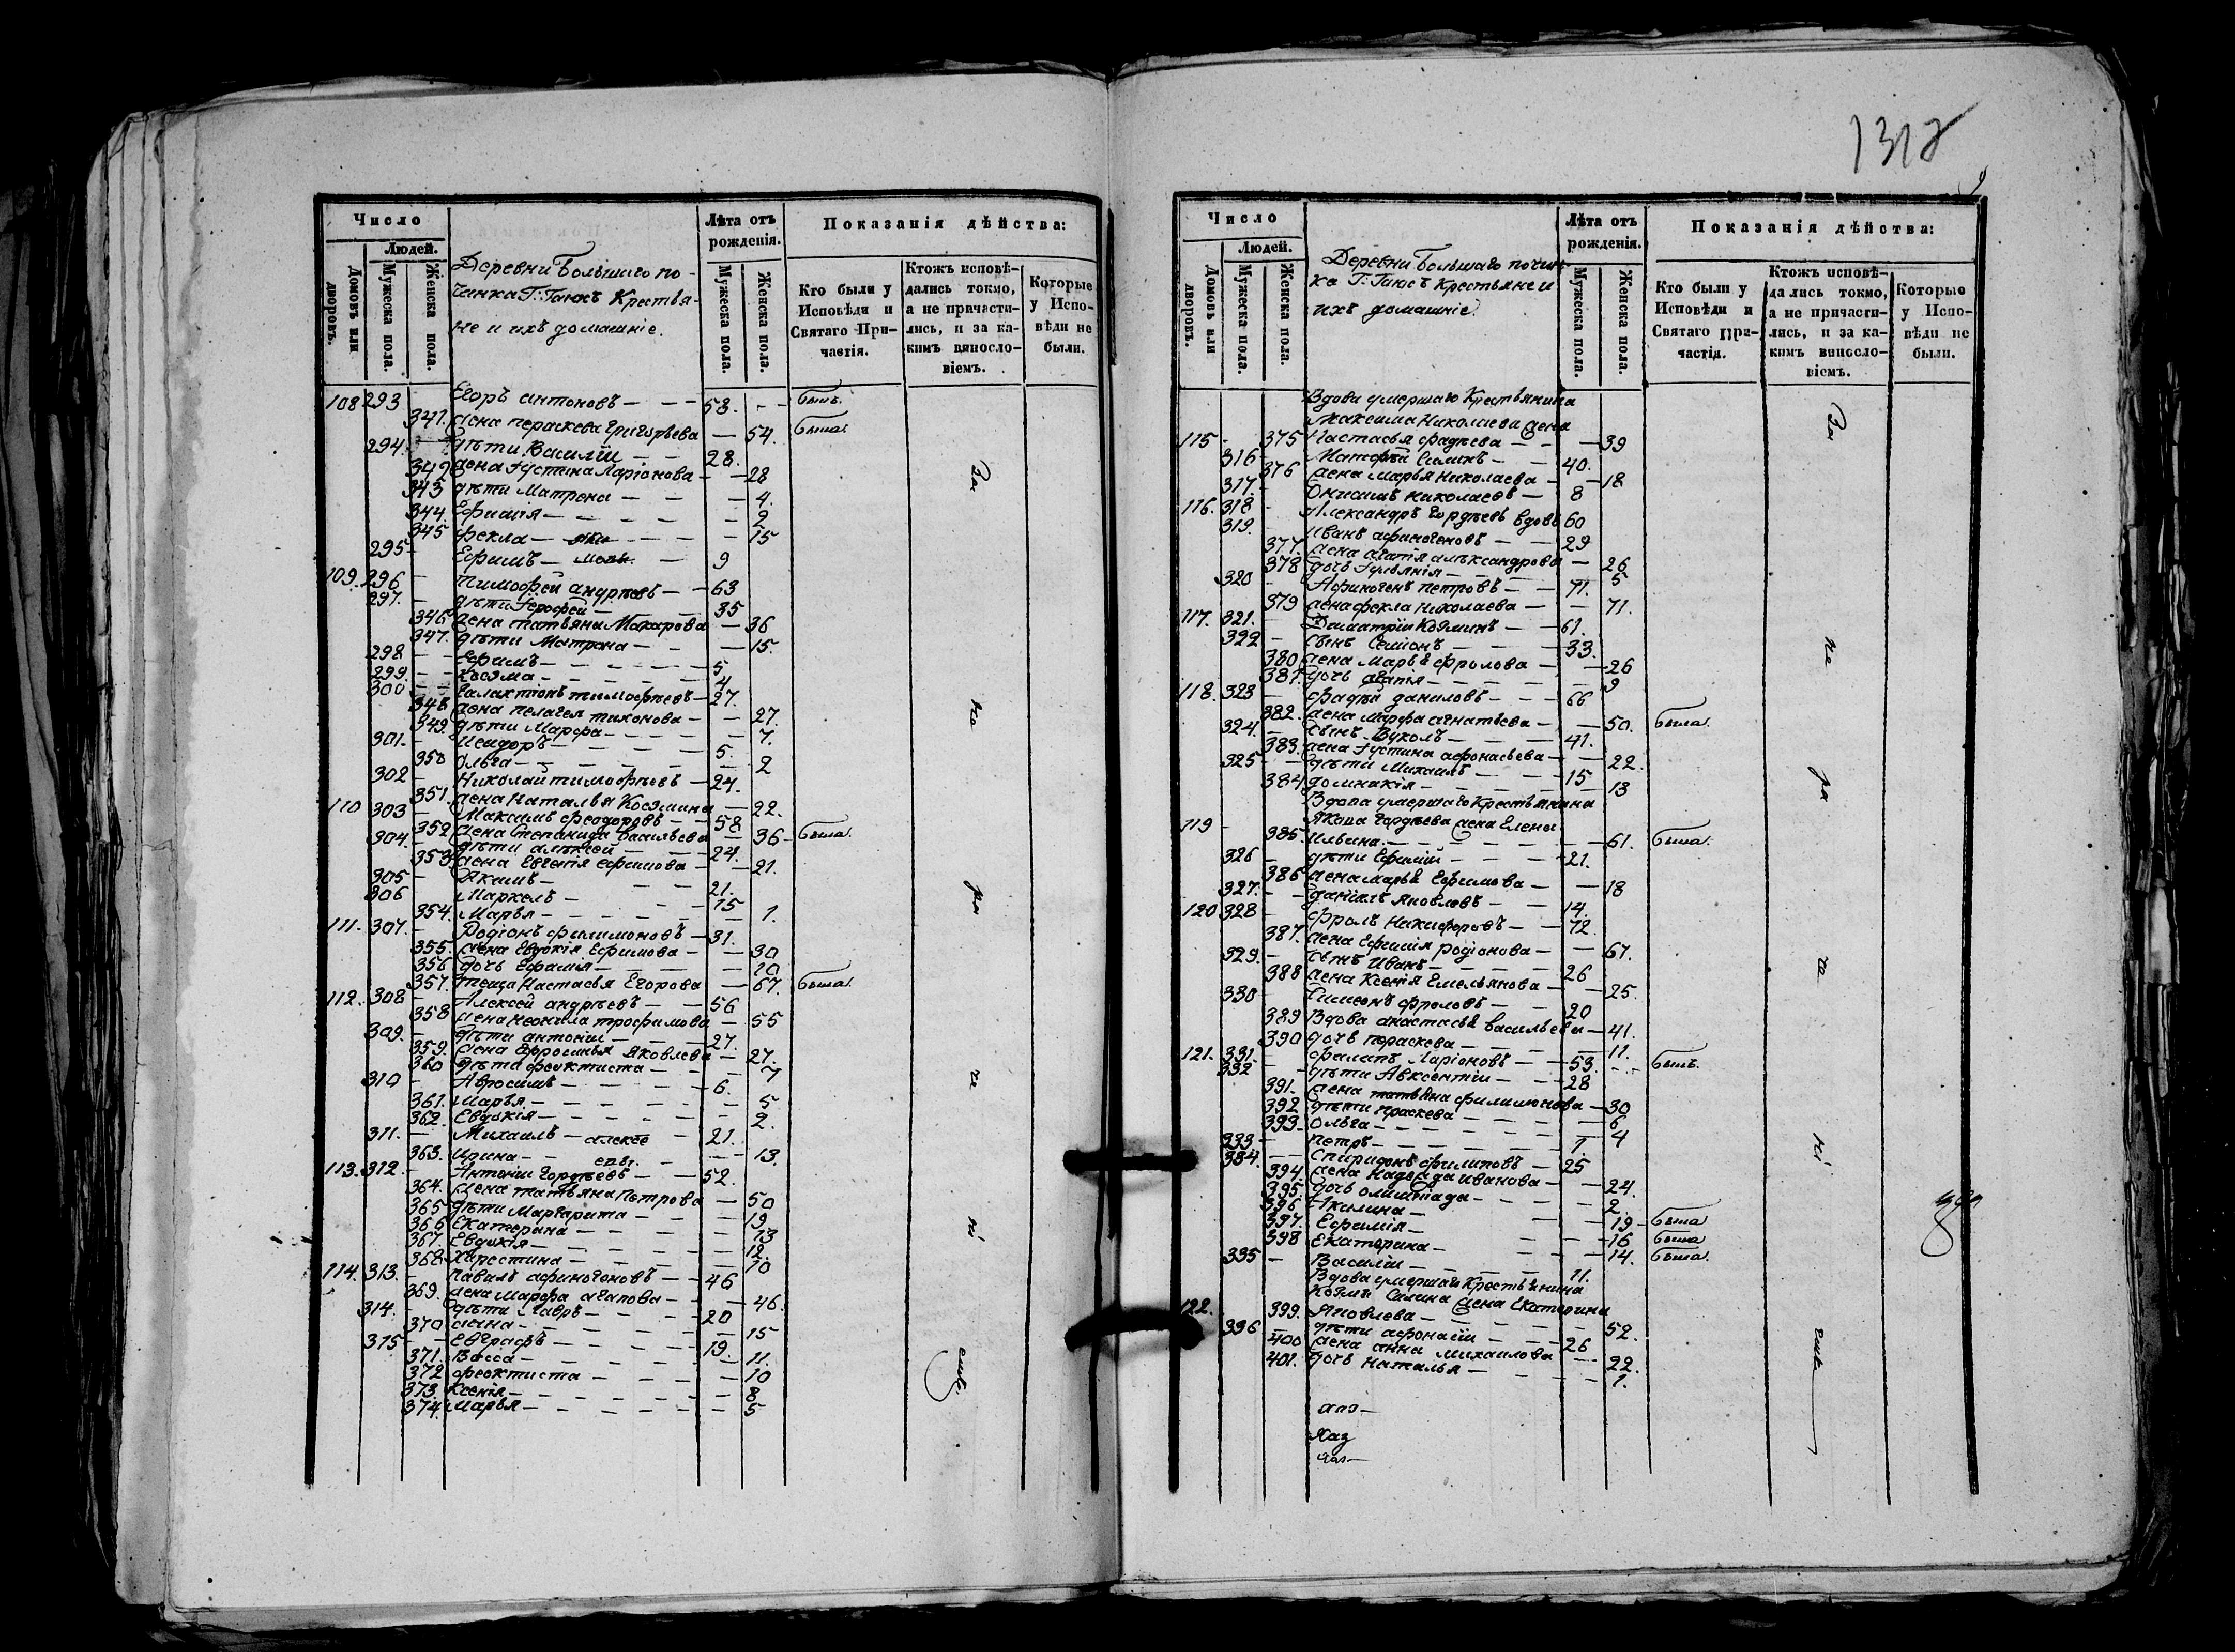 1312
Число
Людей.
Домовъ или дворовъ.
Мужеска пола.
Женска пола.
Деревни Большаго по-
чинка Г: Гаюсъ Крестья-
не и ихъ домашніе.
Лѣта отъ рожденія.
Мужеска пола.
Женска пола.
Показанія дѣйства:
Кто были у Исповѣди и Святаго При-частія.
Ктожъ исповѣ-дались токмо, а не причасти-лись, и за ка-кимъ винословіемъ.
Которые у Испо-вѣди не были.
108 293 Егоръ Антоновъ — 58. былъ.
341. жена Пераскева Григорьева — 54. была.
294. дѣти Василій — 28.
342 жена Іустина Ларіонова — 28
343 дѣти Матрена — 4.
344. Ефимія — 2
345 Фекла — 15
295 Ефимъ — 9
109. 296 Тимофей Андреевъ — 63
297. дѣти Ерофей — 35
346 жена Татьяна Макарова — 36
347. дѣти Матрона — 15.
298 Ефимъ — 5
299. Козма — 4
300 Галактіонъ Тимофѣевъ — 27.
348 жена Пелагея Тихонова — 27.
349. дѣти Марфа — 7.
301. Исидоръ — 5.
350 Ольга — 2
302 Николай Тимофѣевъ — 24.
351. жена Наталья Козмина — 22.
110 303 Максимъ Феодоровъ — 58
352 жена Степанида Васильева — 36 — была.
304. дѣти Алексей — 24.
353. жена Евгенія Ефимова — 21.
305 Якимъ — 21.
306 Маркелъ — 15
354. Марья — 1.
111. 307. Родіонъ Филимоновъ — 31.
355. жена Евдокія Ефимова — 30
356 дочь Ефимія — 10
357. теща Настасья Егорова — 67. была.
112. 308 Алексей Андреевъ — 56
358 жена Неонила Трофимова — 55
309. дѣти Антоній — 27.
359. жена Ефросинья Яковлева — 27.
360 дѣти Феоктиста — 7
310 Авросимъ — 6.
361. Марья — 5
362. Евдокія — 2.
311. Михаилъ — алексе 21.
363. Ирина — евъ. 13.
113. 312. Антоній Гордѣевъ — 52.
364. жена Татьяна Петрова — 50
365 дѣти Маргарита — 19
366 Екатерина — 13
367. Евдокія — 12.
368. Христина — 10
114. 313. Павелъ Афиногеновъ — 46
369. жена Марфа Агапова — 46.
314. дѣти Лавръ — 20
370 Анна — 15
315 Евграфъ — 19.
371. Васса — 11.
372 Феоктиста — 10
373. Ксенія — 8
374. Марья — 5
За
не
ра
че
ні
емъ
Число
Людей.
Домовъ или дворовъ.
Мужеска пола.
Женска пола.
Деревни Большаго почин-
ка Г: Гаюсъ Крестьяне и
ихъ домашніе.
Лѣта отъ рожденія.
Мужеска пола.
Женска пола.
Показанія дѣйства:
Кто были у Исповѣди и Святаго При-частія.
Ктожъ исповѣ-дались токмо, а не причасти-лись, и за ка-кимъ винословіемъ.
Которые у Испо-вѣди не были.
Вдова умершаго Крестьянина
Максима Николаева жена
115 375 Настасья Фадѣева — 39
316 Матфей Силинъ — 40.
376 жена Марья Николаева — 18
317. Онисимъ Николаевъ — 8
116. 318 Александръ Гордѣевъ вдовъ 60
319. Иванъ Афиногеновъ — 29
377. жена Агапія Александрова — 26
378 дочь Іуліянія — 5
320 Афиногенъ Петровъ — 71.
379 жена Фекла Николаева — 71.
117. 321. Димитрій Козминъ — 61.
322 сынъ Семіонъ — 33.
380 жена Марья Фролова — 26
381. дочь Агапія — 9
118. 323 Фадѣй Даниловъ — 66
382. жена Марфа Игнатьева — 50. была.
324. сынъ Вуколъ — 41.
383. жена Іустина Афонасьева — 22.
325 дѣти Михаилъ — 15
384 Домникія — 13
Вдова умершаго Крестьянина
119 Якова Гордѣева жена Елена
385. Ильина — 61. была.
326 дѣти Ефимій — 21.
386 жена Марья Ефимова — 18
327. Даніилъ Яковлевъ — 14.
120 328 Фролъ Никифоровъ — 72.
387. жена Ефимія Родіонова — 67.
329. сынъ Иванъ — 26
388 жена Ксенія Емельянова — 25.
330 Симеонъ Фроловъ — 20
389 Вдова Анастасья Васильева — 41.
390 дочь Пораскева — 11.
121. 331. Филипъ Ларіоновъ — 53. былъ.
332 дѣти Авксентій — 28
391. жена Татьяна Филимонова — 30
392 дѣти Праскева — 6
393. Ольга — 4
333 Петръ — 1.
334. Спиридонъ Филиповъ — 25
394. жена Надежда Иванова — 24.
395. дочь Олимпіада — 2.
396 Акилина — 19 — была
397. Ефимія — 16 была
398 Екатерина — 14. была.
335 Василій — 11.
Вдова умершаго Крестьянина
Козмы Силина жена Екатерина
122. 399. Яковлева — 52.
336 дѣти Афонасій — 26
400 жена Анна Михаилова — 22.
401. дочь Наталья — 1.
За
не
ра
че
ні
емъ